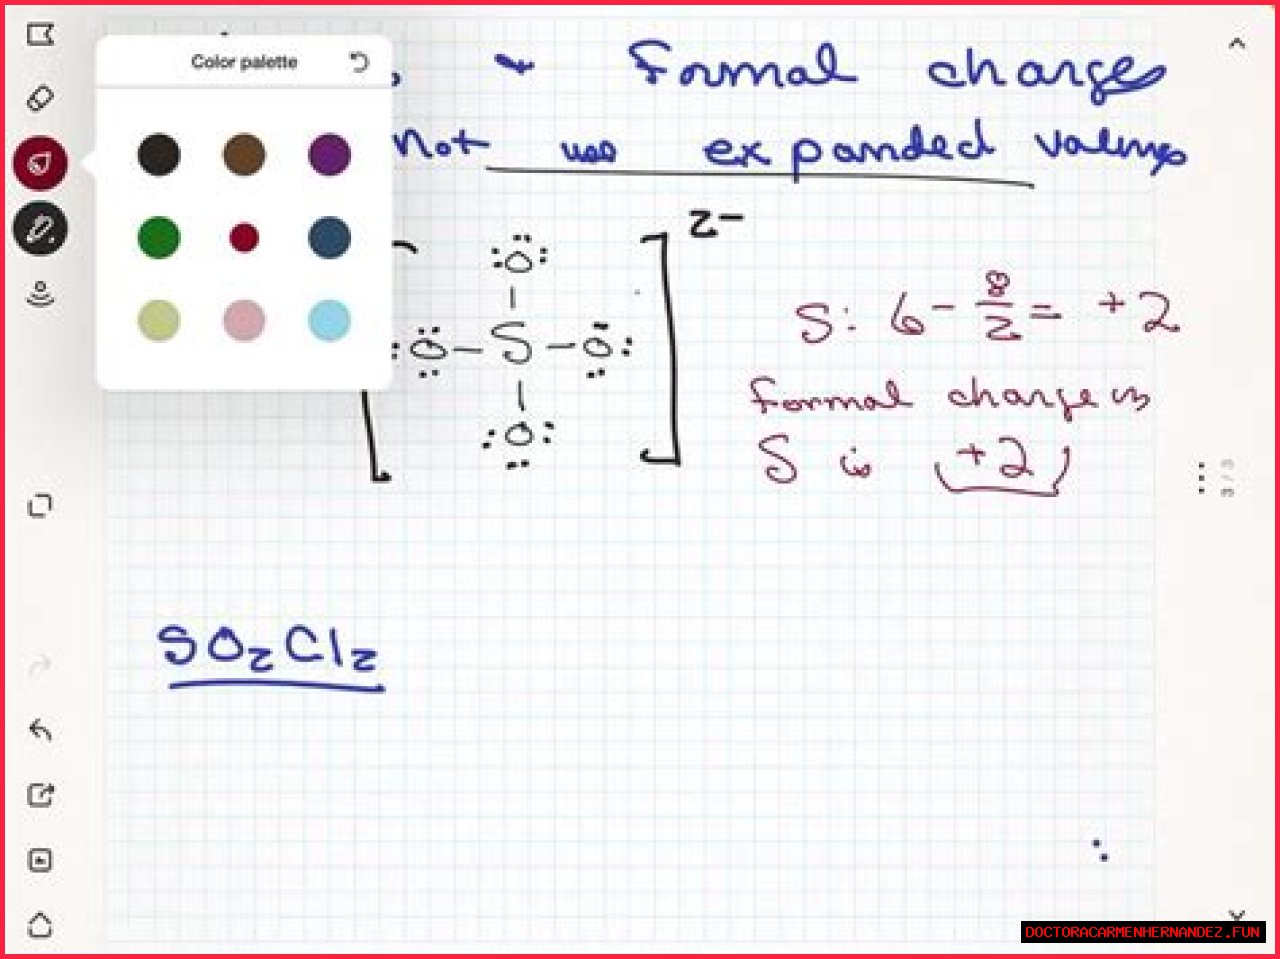 Color palette
Formal charge
not use expanded valency
2-
:Ö: 
S: 6 - 8/2 = +2
:Ö - S - Ö:
Formal charge on
:O:
S is +2
3 / 3
SO2Cl2
DOCTORACARMENHERNANDEZ.FUN